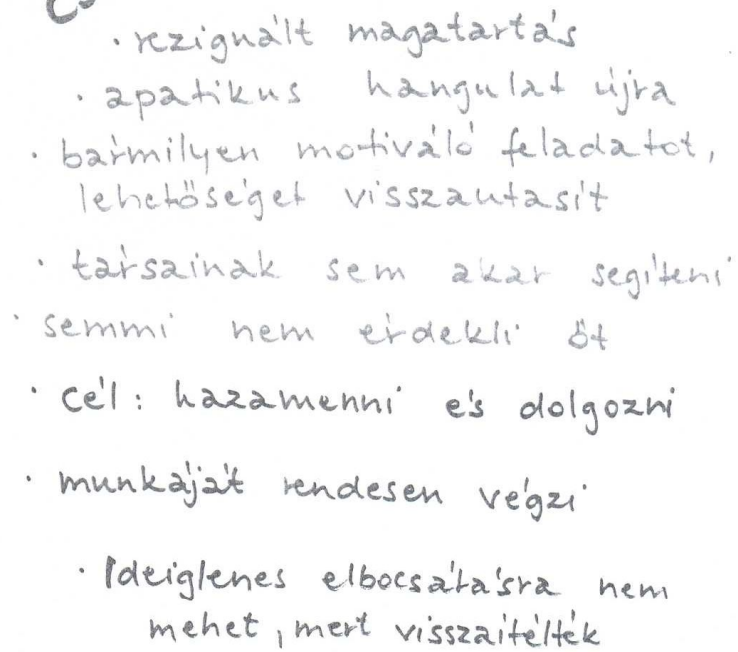 · rezignált magatartás
· apatikus hangulat újra
· bármilyen motiváló feladatot,
lehetőséget visszautasít
· társainak sem akar segíteni
· semmi nem érdekli őt
· cél: hazamenni és dolgozni
· munkáját rendesen végzi
· Ideiglenes elbocsátásra nem
mehet, mert visszaítélték